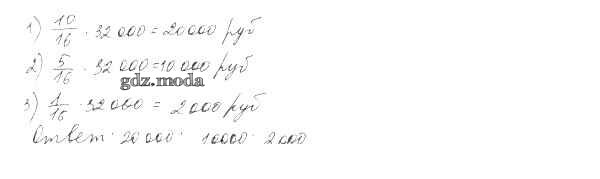 1) 10/16 · 32 000 = 20000 руб
2) 5/16 · 32 000 = 10 000 руб
gdz.moda
3) 1/16 · 32 000 = 2 000 руб
Ответ: 20 000; 10000; 2 000